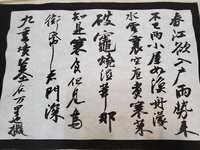 春江欲入戶雨勢来
不已雨小屋如漁舟濛
水雲裏空庖煮寒菜
破竈燒濕葦那
知是寒食但見烏
銜帋君門深
九重墳墓在万里也擬